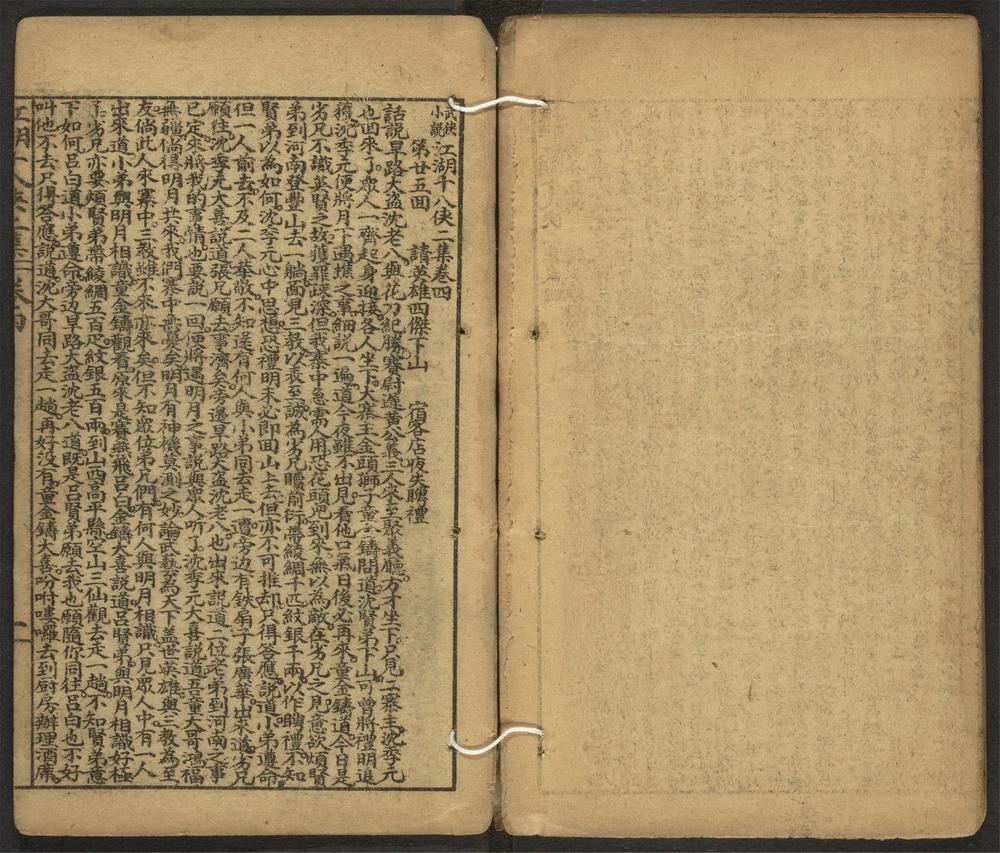 武俠小說 江湖十八俠二集卷四
第廿五回 請英雄四傑下山 宿客店夜失聘禮
話說旱路大盜沈老八與花刀紀勝賽尉遲黃公義三人來至聚義廳方才坐下只見二寨主沈季元
也回來了衆人一齊起身迎接各人坐下大寨主金頭獅子童金鑄問道沈賢弟下山可曾將禮明退
沈季元便將月下遇樵之事細說一遍道今夜雖不出見看他口氣日後必再來童金鑄道今日是
劣兄不識英賢之故獲罪踈深但我寨中急需人用恐花頭兕到來無以為敵在劣兄之見意欲煩賢
弟到河南登豐山去一躺面見三教以表至誠為劣兄贖前衍帶綾綢千匹紋銀千兩以作聘禮不知
賢弟以為如何沈季元心中思想恐禮明未必即回山上去但亦不可推却只得答應說道小弟遵命
但一人前去不及二人恭敬不知還有何人與小弟同去走一遭旁边有鉄扇子張廣華出來道劣兄
願往沈季元大喜說道張兄願去事濟矣旁邊旱路大盜沈老八也出來說道二位老弟到河南之事
已定來將我的事情也要說一回便將遇明月之事說與衆人听了沈季元大喜說道吾童大哥鴻福
無疆倘得明月共來我們寨中無憂矣明月有神機莫測之妙論武藝為天下盖世英雄與三教為至
友倘此人來寨中三教雖不來亦來矣但不知衆位弟兄們有何人與明月相識只見眾人中有一人
出來道小弟與明月相識童金鑄觀看原來是賽燕飛呂白金鑄大喜說道呂賢弟與明月相識好極
了劣兄亦要煩賢弟帶綾綢五百疋紋銀五百兩到山西高平縣空山三仙觀去走一趟不知賢弟意
下如何呂白道小弟遵命旁边旱路大盜沈老八道既是呂賢弟願去我也願隨你同往呂白也不好
叫他不去只得答應說道沈大哥同去走一趟再好沒有童金鑄大喜吩咐嘍囉去到厨房辦理酒席